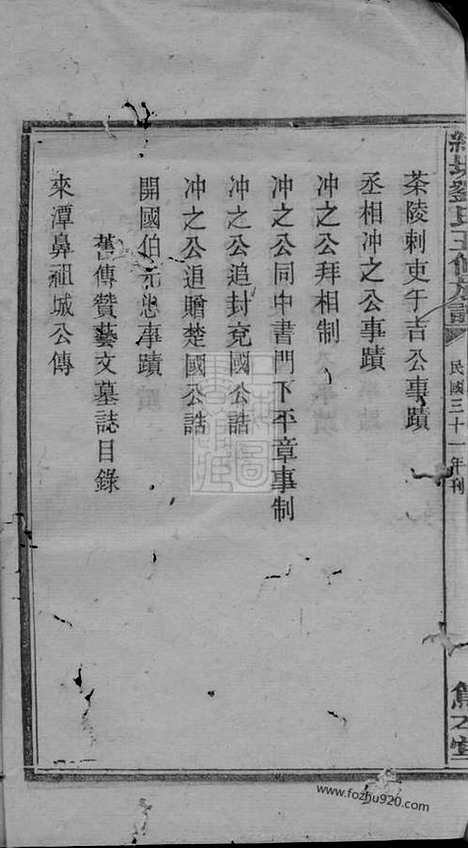 茶陵刺吏于吉公事蹟
丞相冲之公事蹟
冲之公拜相制
冲之公同中書門下平章事制
冲之公追封兗國公誥
冲之公追贈楚國公誥
開國伯元忠事蹟
舊傳贊藝文墓誌目錄
來潭鼻祖城公傳
劉氏五修族譜
民國三十一年刊
www.fozhu920.com